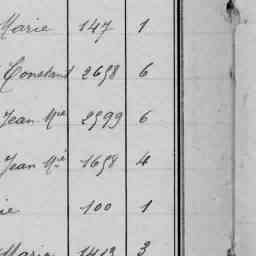 Marie 147 1
Constant 2698 6
Jean Mie 2999 6
Jean Mie 1698 4
ie 100 1
Marie 1413 3